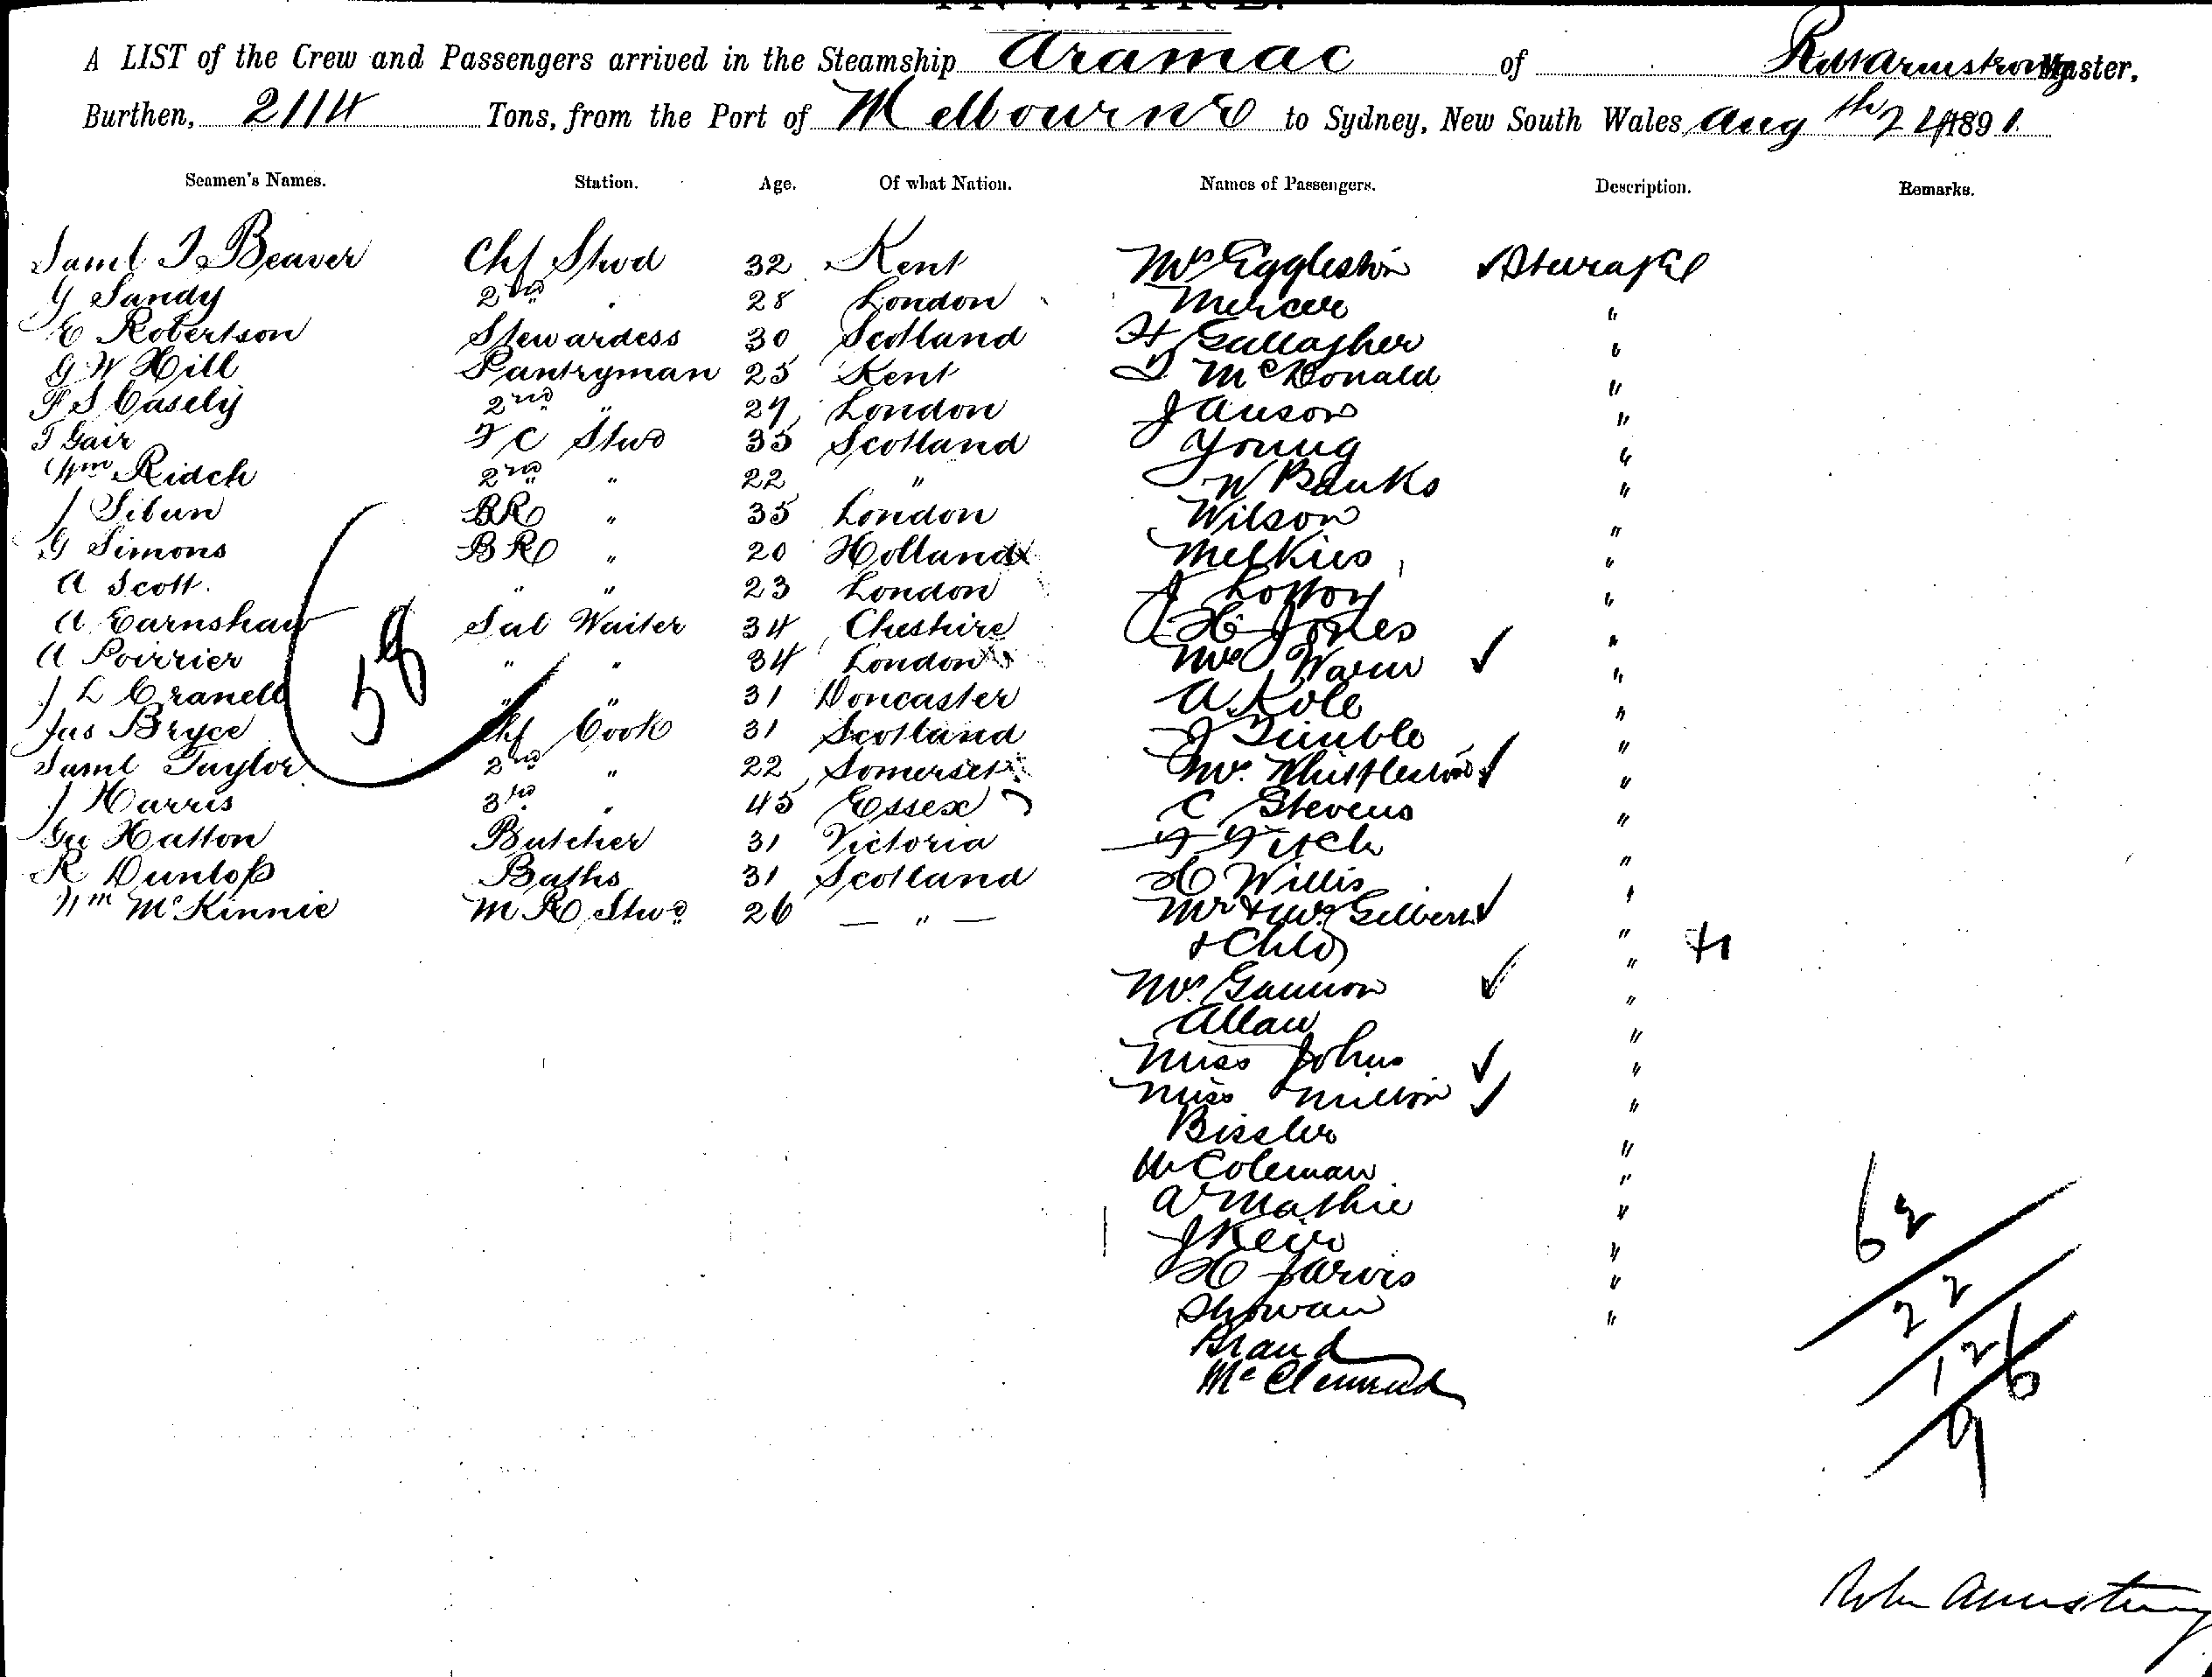 A LIST of the Crew and Passengers arrived in the Steamship Aramac of Armstrong Master,
Burthen, 2114 Tons, from the Port of Melbourne to Sydney, New South Wales Aug 24th 1891
Seamen's Names. Station. Age. Of what Nation. Names of Passengers. Description. Remarks.
Saml J Beaver Chf Stwd 32 Kent Mrs Eggleston Steerage
G Sandy 2nd " 28 London Mercer "
E Robertson Stewardess 30 Scotland H Gallagher "
G W Hill Pantryman 25 Kent T McDonald "
F S Casely 2nd " 27 London J Anson "
T Gair F C Stwd 35 Scotland Young "
Wm Ridch 2nd " 22 " W Banks "
J Sibun BR " 35 London Wilson "
G Simons BR " 20 Holland Melkies "
A Scott " " 23 London J Lotton "
A Earnshaw Sal Waiter 34 Cheshire H Jones "
A Poirrier " " 34 London Mrs Warm "
J L Cranell " " 31 Doncaster A Kole "
Jas Bryce Chf Cook 31 Scotland J Trimble "
Saml Taylor 2nd " 22 Somerset Mrs Whistleston "
J Harris 3rd " 45 Essex C Stevens "
Geo Hatton Butcher 31 Victoria F Fitch "
R Dunlop Baths 31 Scotland H Willis "
Wm McKinnie M R Stwd 26 — " — Mr & Mrs Gilbert "
& Chld "
Mrs Gannon "
Allan "
Miss Johns "
Miss Milton "
Bissler "
W Coleman "
A Mathie "
J Keir "
H Jarvis "
Showan "
Brand
McClennand
58
62
22
126
9
Robn Armstrong